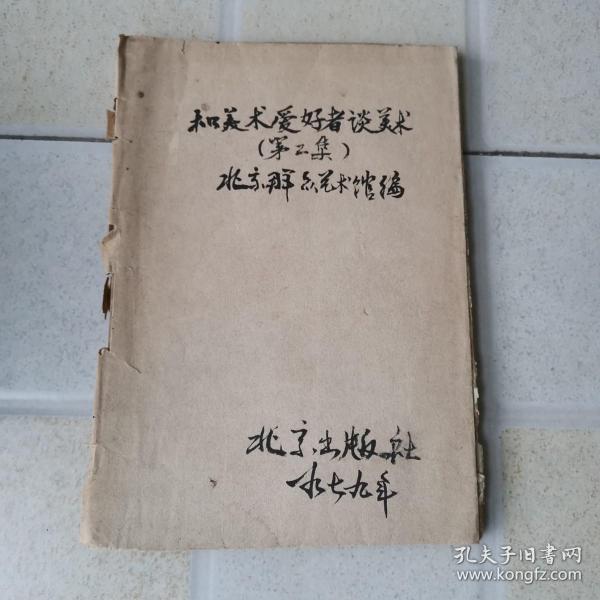 和美术爱好者谈美术
(第二集)
北京群众艺术馆编
北京出版社
一九七九年
孔夫子旧书网
www.kongfz.com